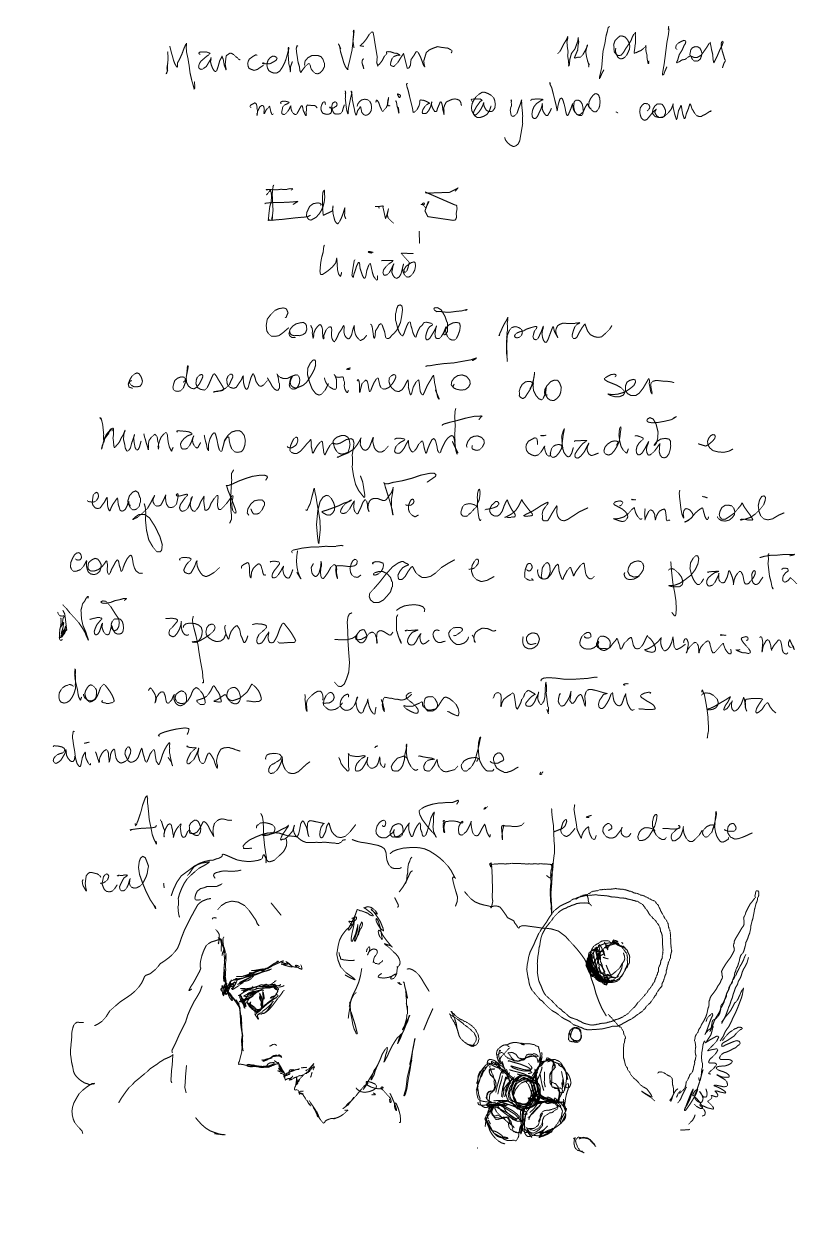 Marcello Vilar 14/04/2011
marcellovilar@yahoo.com
Edu
União
Comunhão para
o desenvolvimento do ser
humano enquanto cidadão e
enquanto parte dessa simbiose
com a natureza e com o planeta
Não apenas fortacer o consumismo
dos nossos recursos naturais para
alimentar a vaidade.
Amor para contrair felicidade
real.